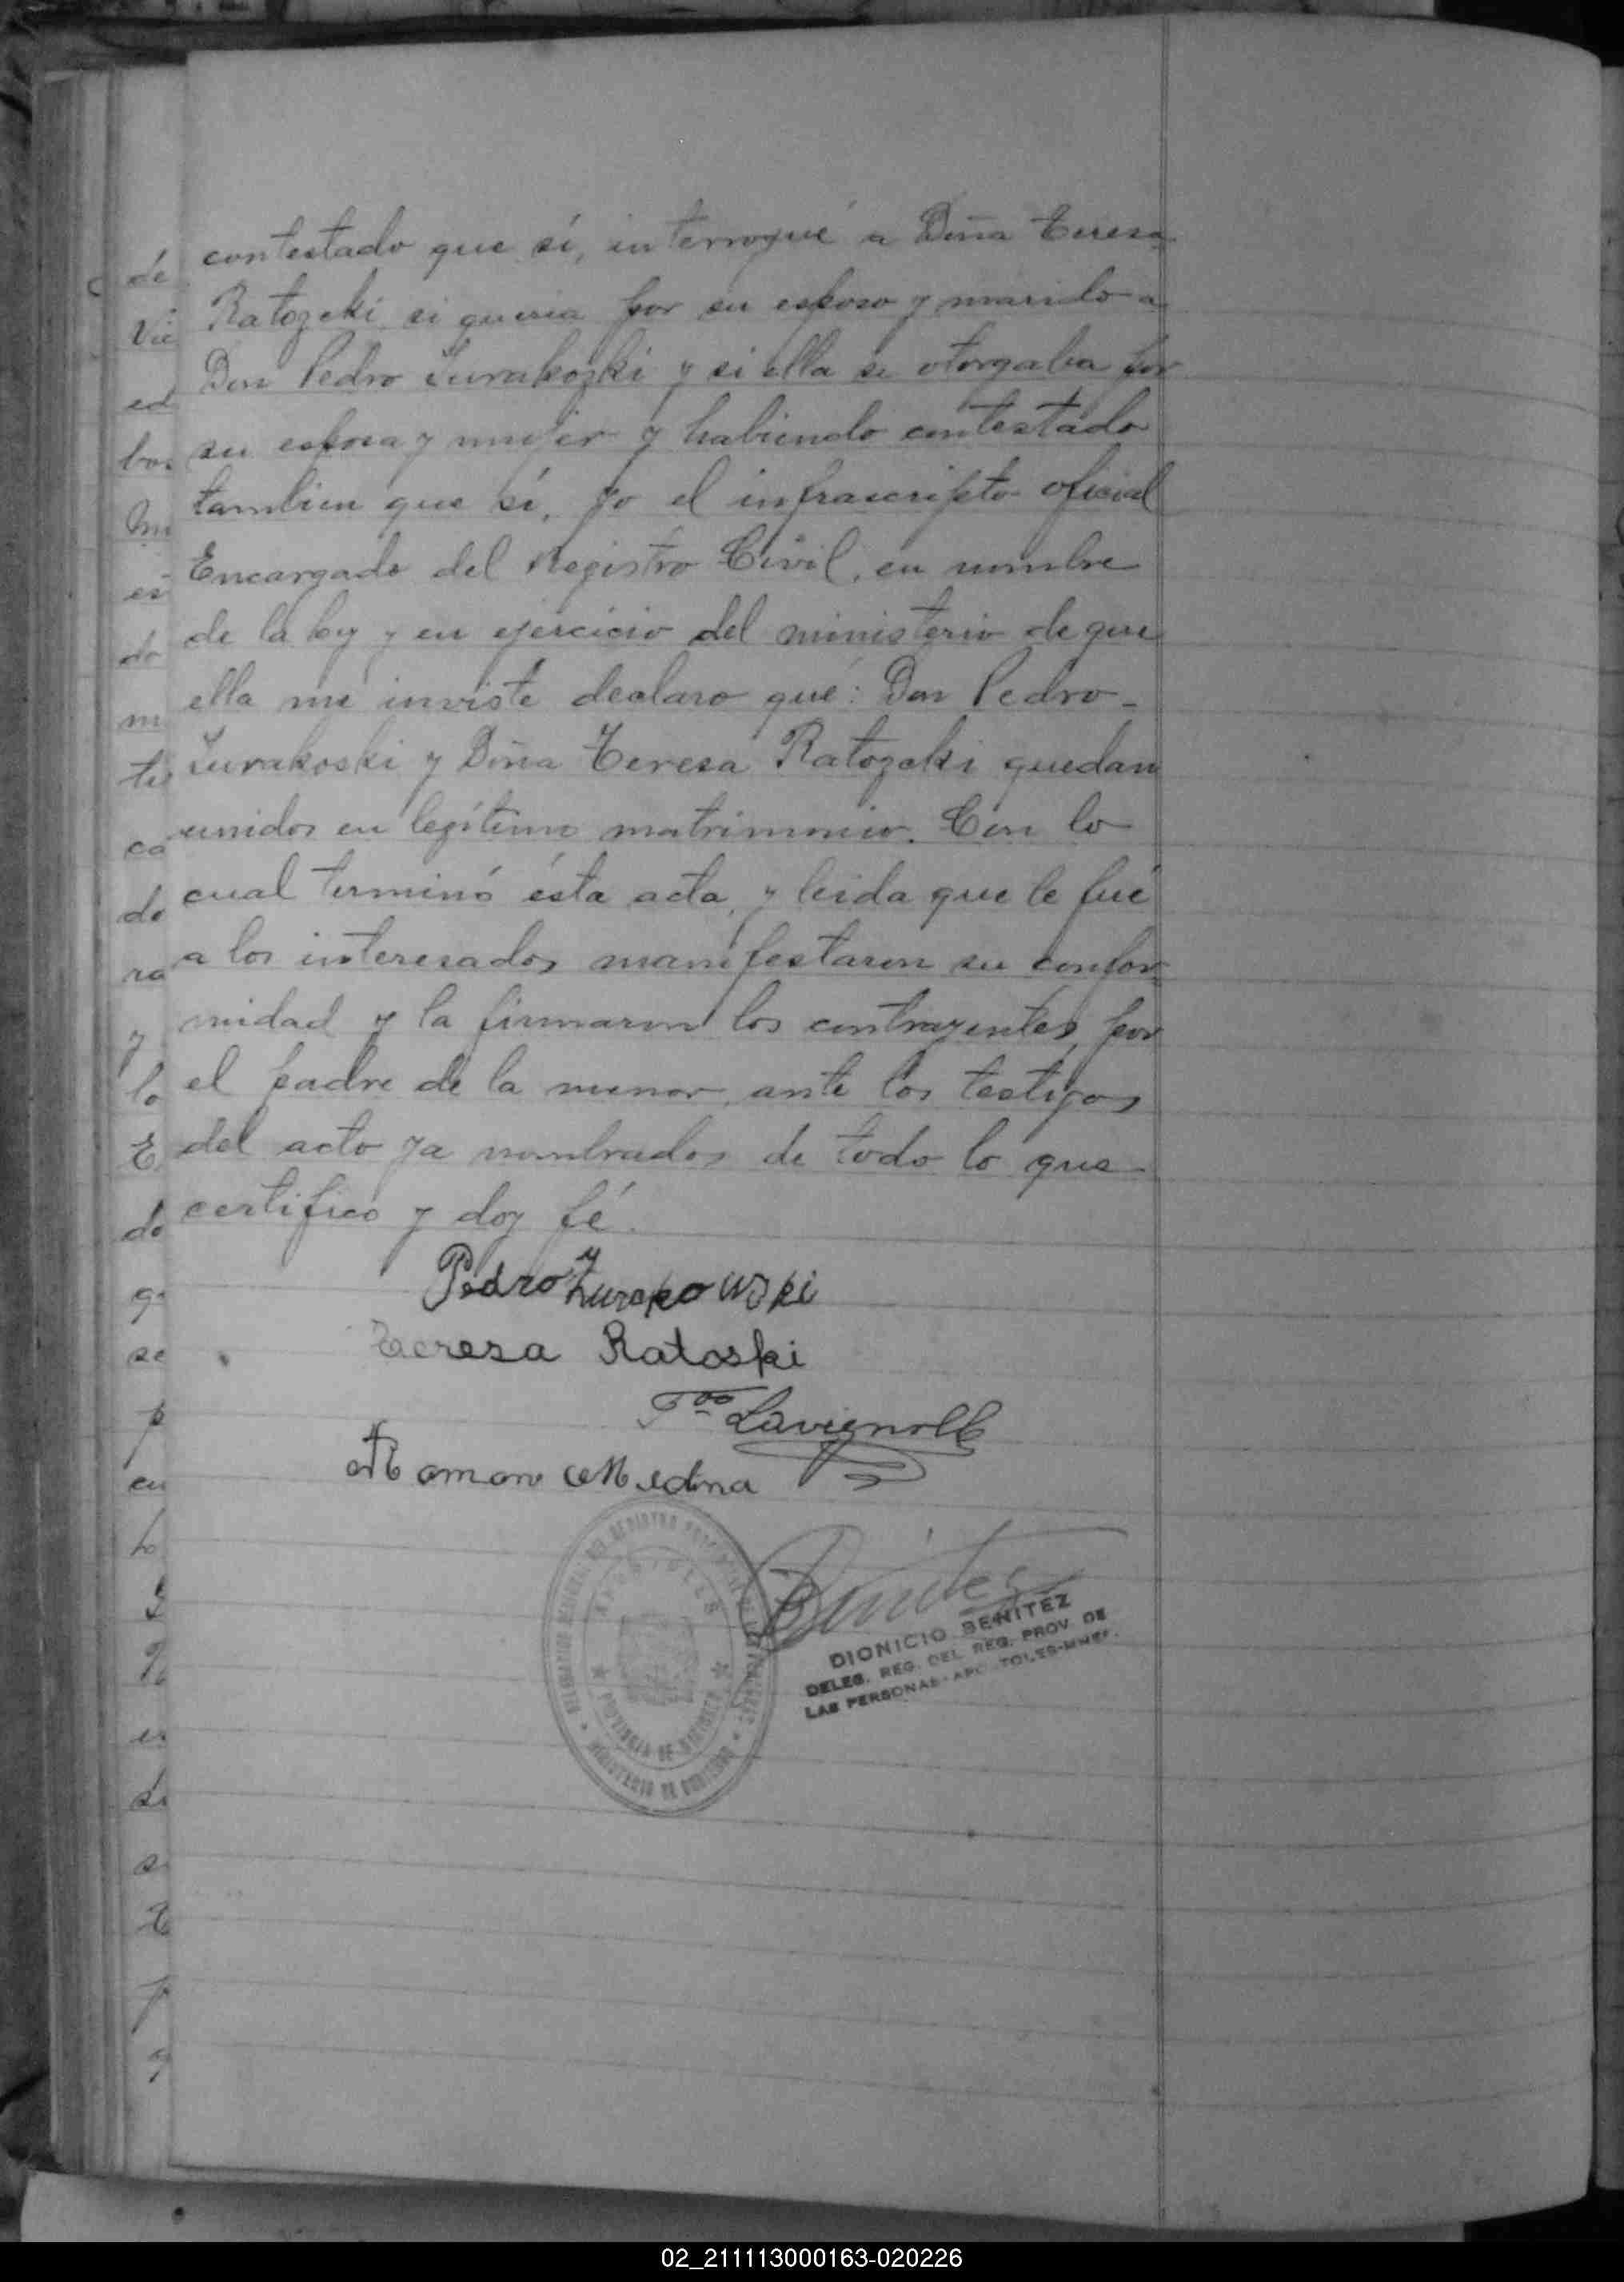 contestado que sí, interrogué a Doña Teresa
Ratozcki si queria por su esposo y marido a
Don Pedro Zurakozki y si ella se otorgaba por
su esposa y mujer y habiendo contestado
tambien que sí, yo el infrascripto oficial
Encargado del Registro Civil, en nombre
de la ley y en ejercicio del ministerio de que
ella me inviste declaro qué: Don Pedro -
Zurakoski y Doña Teresa Ratozcki quedan
unidos en legítimo matrimonio. Con lo
cual terminó ésta acta, y leida que le fué
a los interesados manifestaron su confor-
midad y la firmaron los contrayentes, por
el padre de la menor, ante los testigos
del acto ya nombrados de todo lo que
certifico y doy fé.
Pedro Zurakowski
Teresa Ratoski
Lavignolle
Ramon Medina
Benitez
DIONICIO BENITEZ
DELEG. REG. DEL REG. PROV. DE
LAS PERSONAS - APOSTOLES - MNES.
APOSTOLES
PROVINCIA DE MISIONES
MINISTERIO DE GOBIERNO
02_211113000163-020226